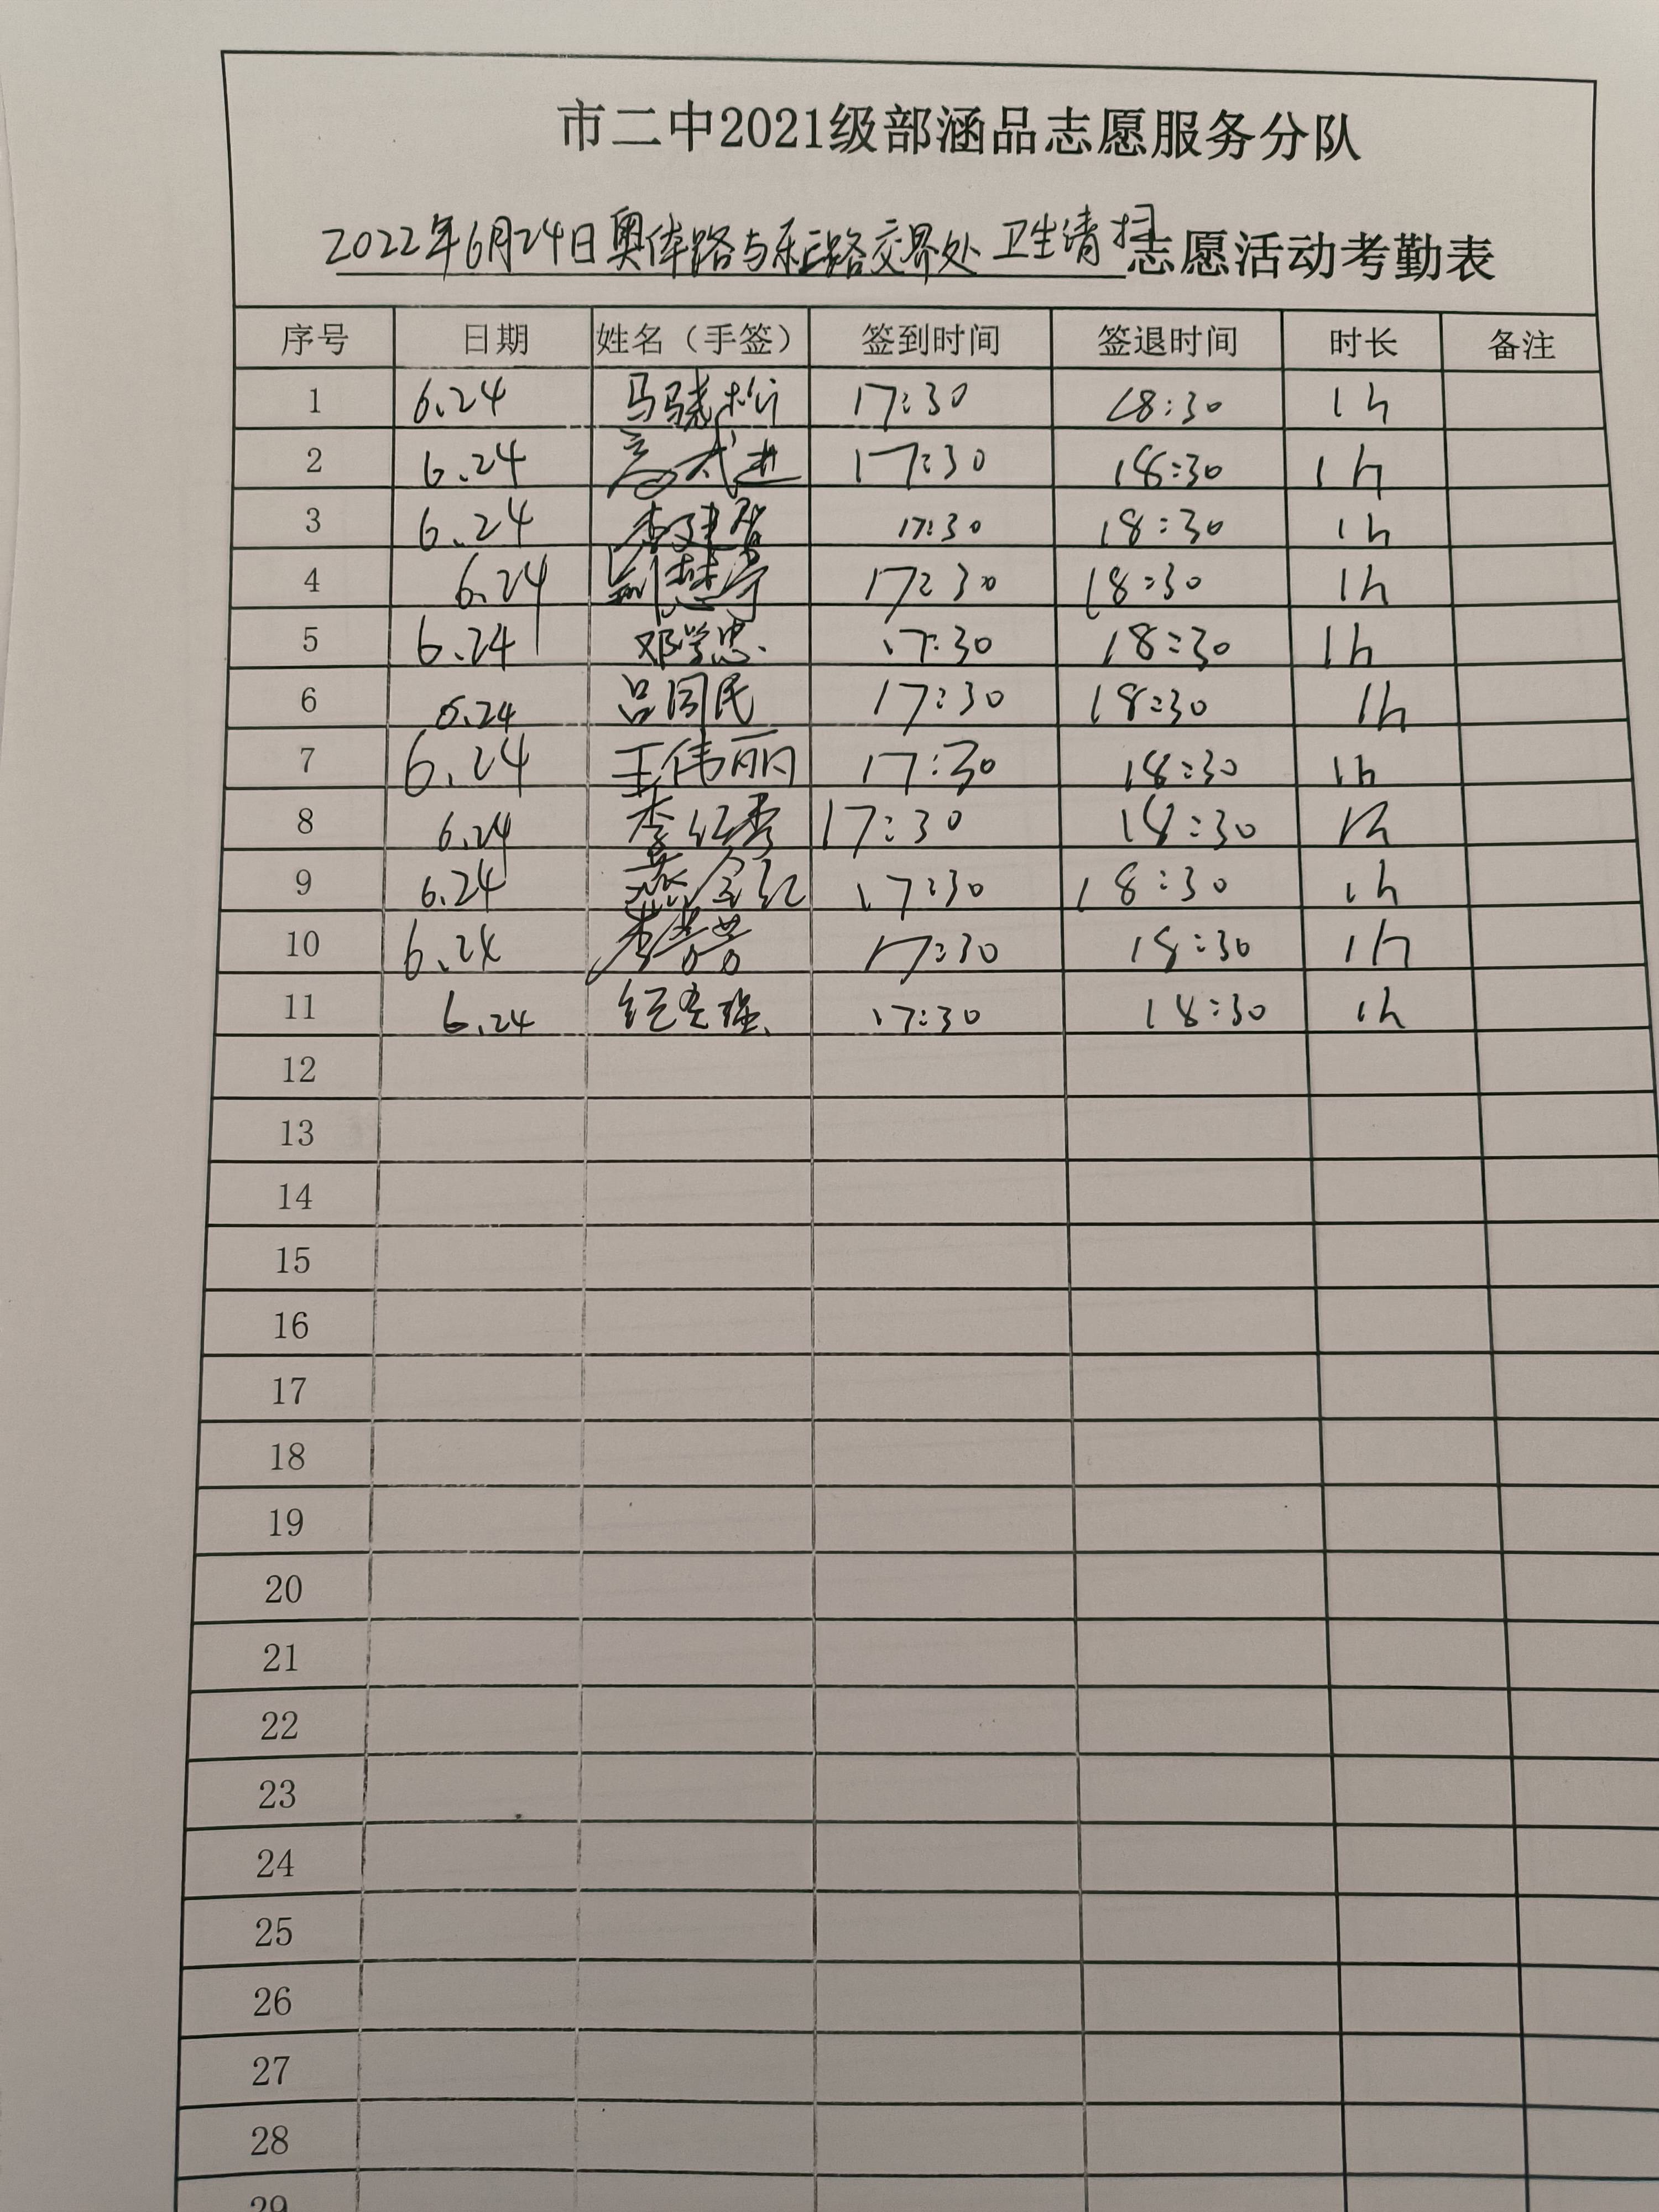 市二中2021级部涵品志愿服务分队
2022年6月24日奥体路与乐路交界处 卫生清扫志愿活动考勤表
序号 日期 姓名（手签） 签到时间 签退时间 时长 备注
1 6.24 马骁 17:30 18:30 1h
2 6.24 高武进 17:30 18:30 1h
3 6.24 李建 17:30 18:30 1h
4 6.24 刘慧 17:30 18:30 1h
5 6.24 邓学忠 17:30 18:30 1h
6 6.24 吕国民 17:30 18:30 1h
7 6.24 王伟丽 17:30 18:30 1h
8 6.24 李红秀 17:30 18:30 1h
9 6.24 燕金红 17:30 18:30 1h
10 6.24 李芳芳 17:30 18:30 1h
11 6.24 强 17:30 18:30 1h
12
13
14
15
16
17
18
19
20
21
22
23
24
25
26
27
28
29